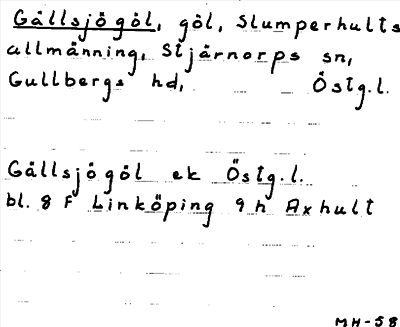 Gållsjögöl, göl, Slumperhults
allmänning, Stjärnorps sn,
Gullbergs hd, Östg.l.
Gållsjögöl ek Östg.l.
bl. 8 F Linköping 9 h Axhult
MH-58